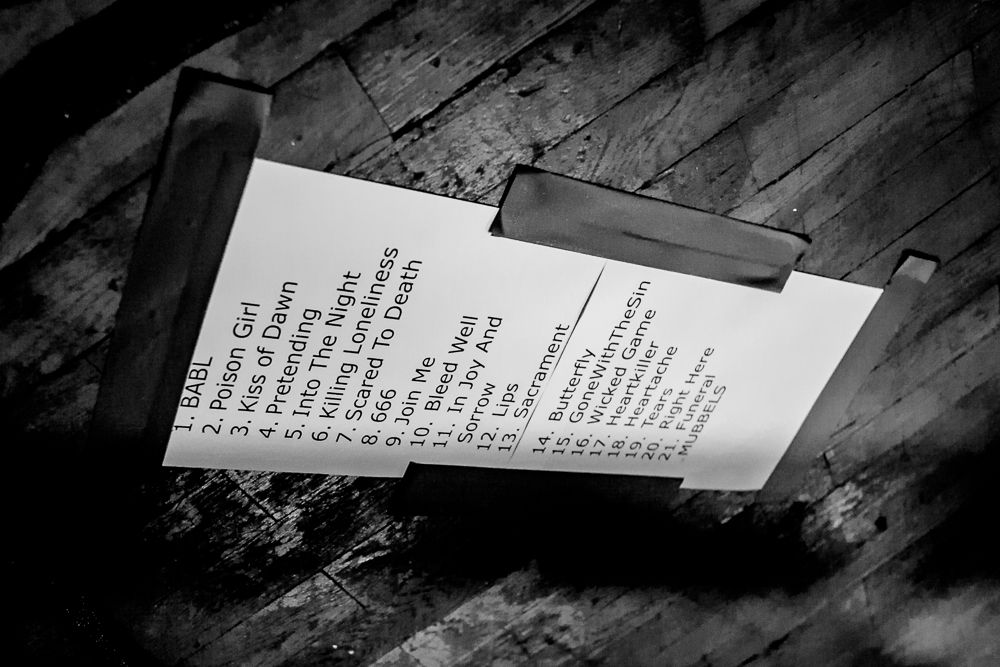 1. BABL
2. Poison Girl
3. Kiss of Dawn
4. Pretending
5. Into The Night
6. Killing Loneliness
7. Scared To Death
8. 666
9. Join Me
10. Bleed Well
11. In Joy And
Sorrow
12. Lips
13. Sacrament
14. Butterfly
15. GoneWithTheSin
16. Wicked Game
17. Heartkiller
18. Heartache
19. Tears
20. Right Here
21. Funeral
-MUBBELS